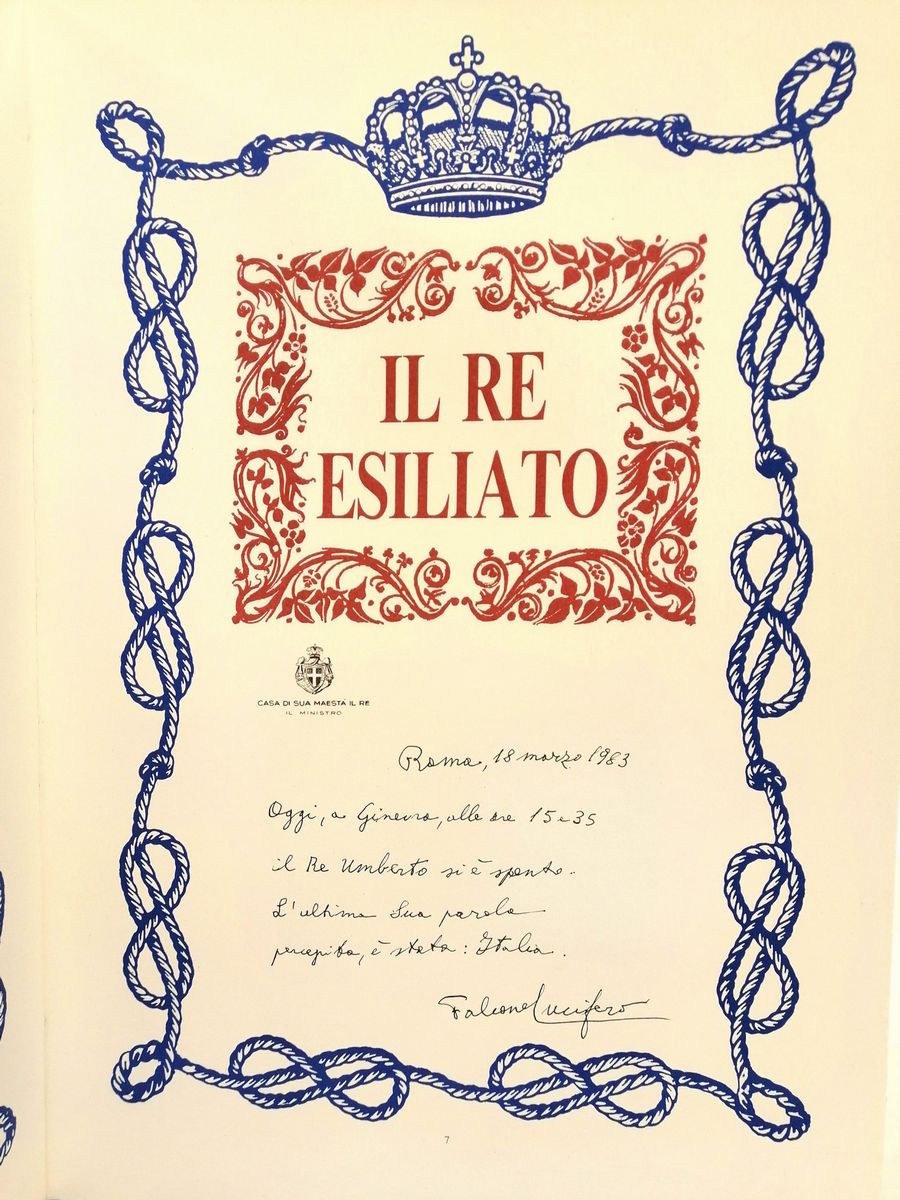 IL RE
ESILIATO
CASA DI SUA MAESTÀ IL RE
IL MINISTRO
Roma, 18 marzo 1983
Oggi, a Ginevra, alle ore 15 e 35
il Re Umberto si è spento.
L'ultima Sua parola
percepita, è stata: Italia.
Falcone Lucifero
7